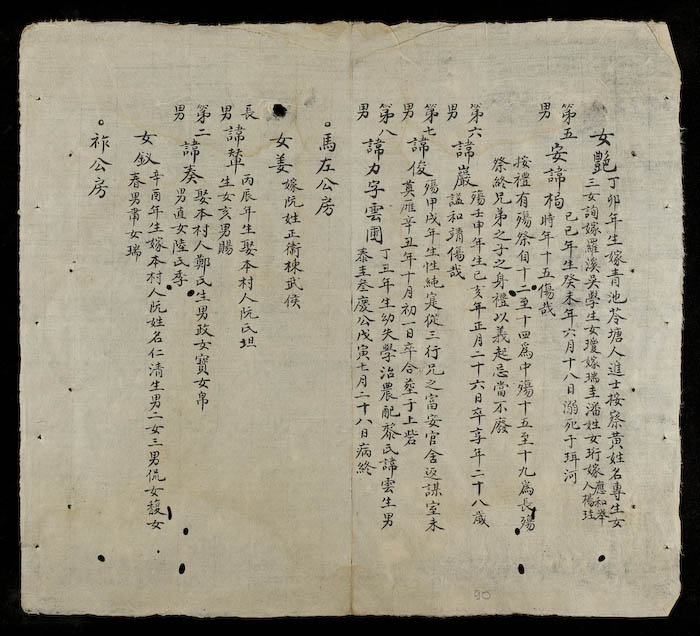 女艶丁卯年生嫁青池苓塘人進士按察黄姓名專生女
三女詢嫁羅溪吴學生女瓊嫁瑞圭潘姓女珩嫁應和舉人楊珪
第五男安諱栢己巳年生癸未年六月十八日溺死于珥河
時年十五傷哉
按禮有殤祭自十二至十四爲中殤十五至十九爲長殤
祭終兄弟之子之身禮以義起忌當不廢
第六男諱巖殤壬申年生己亥年正月二十六日卒享年二十八歲
諡和靖傷哉
第七男諱俊殤甲戌年生性純寔從三行兄之富安官舍返謀室未
奠雁辛丑年十月初一日卒合葬于上砦
第八男諱力字雲圃丁丑年生幼失學治農配黎氏諱雲生男
泰圭叁慶公戊寅七月二十八日病終
。馬左公房
女姜嫁阮姓正衛棟武侯
長男諱輦丙辰年生娶本村人阮氏坦
生女亥男腸
第二男諱奏娶本村人鄭氏生男政女寳女帛
男直女陸氏季
女釵辛酉年生嫁本村人阮姓名仁清生男二女三男侃女馥女
春男肅女瑞
。祚公房
90